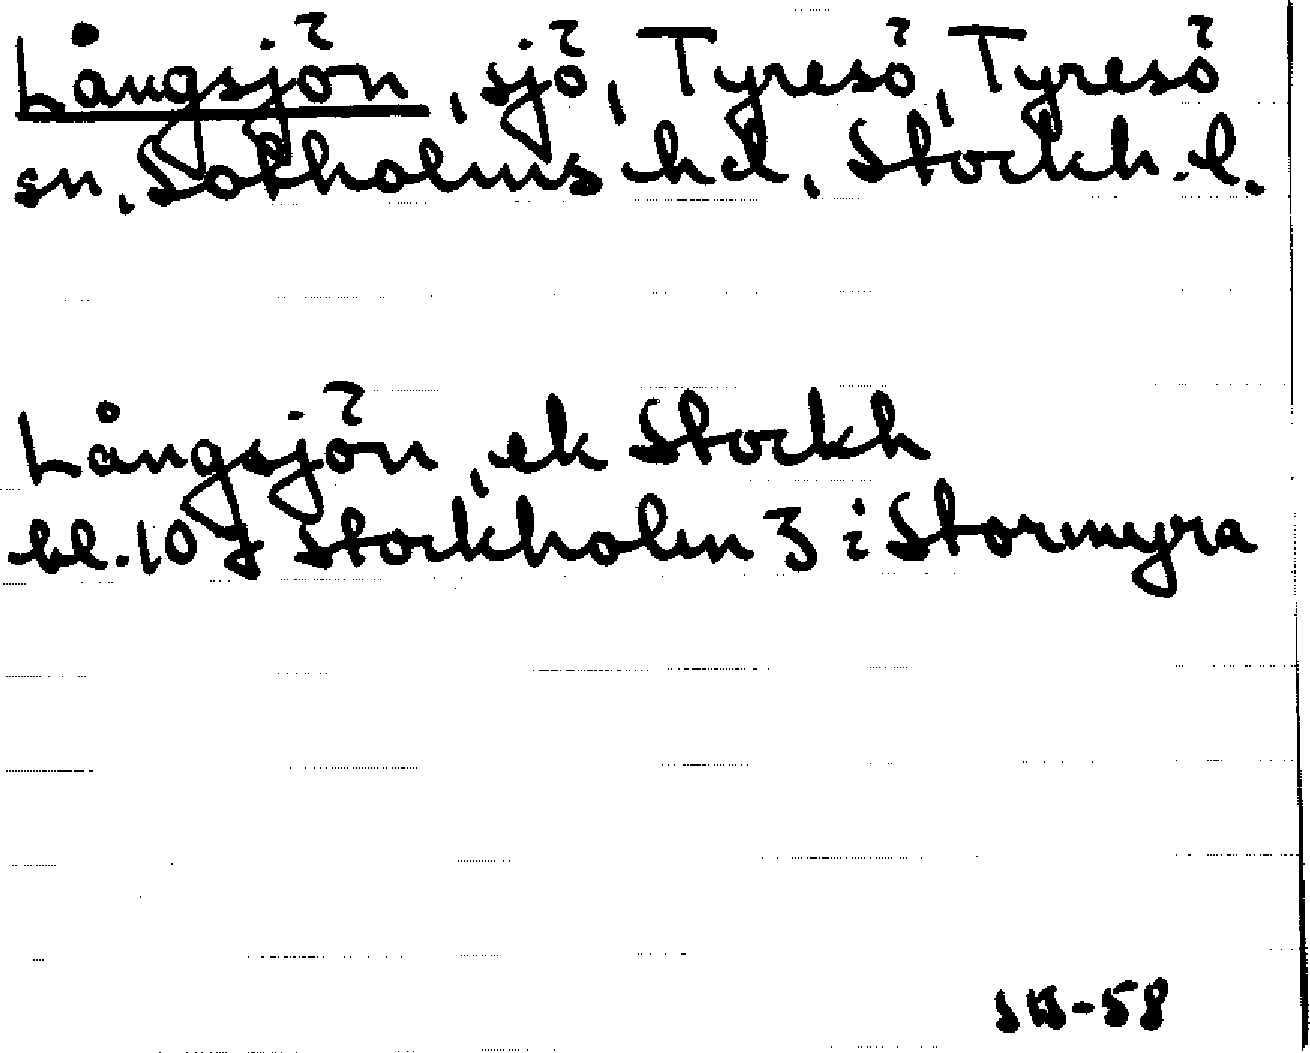 Långsjön, sjö, Tyresö, Tyresö
sn, Sotholms hd, Stockh. l.
Långsjön, ek Stockh
bl. 10 J Stockholm 3 i Stormyra
SB-58